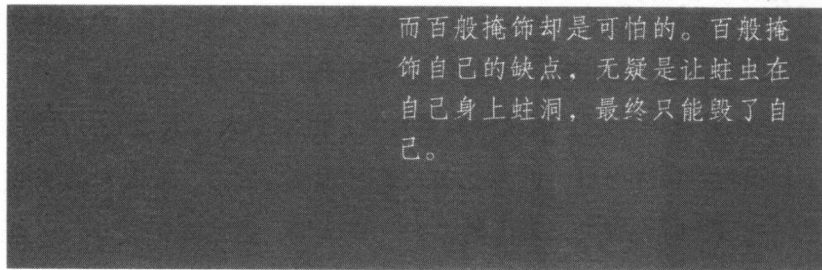 而百般掩饰却是可怕的。百般掩
饰自己的缺点，无疑是让蛀虫在
自己身上蛀洞，最终只能毁了自
己。